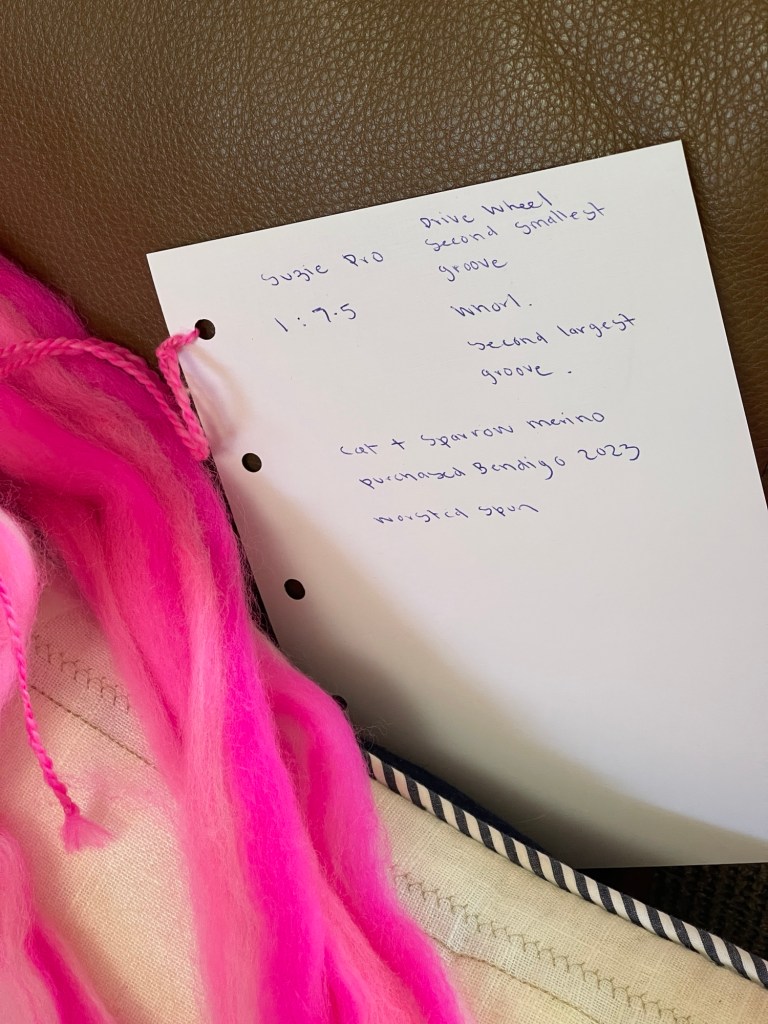 Drive Wheel
second smallest
groove
Suzie Pro
1:7.5
Whorl.
second largest
groove.
Cat + Sparrow merino
purchased Bendigo 2023
worsted spun